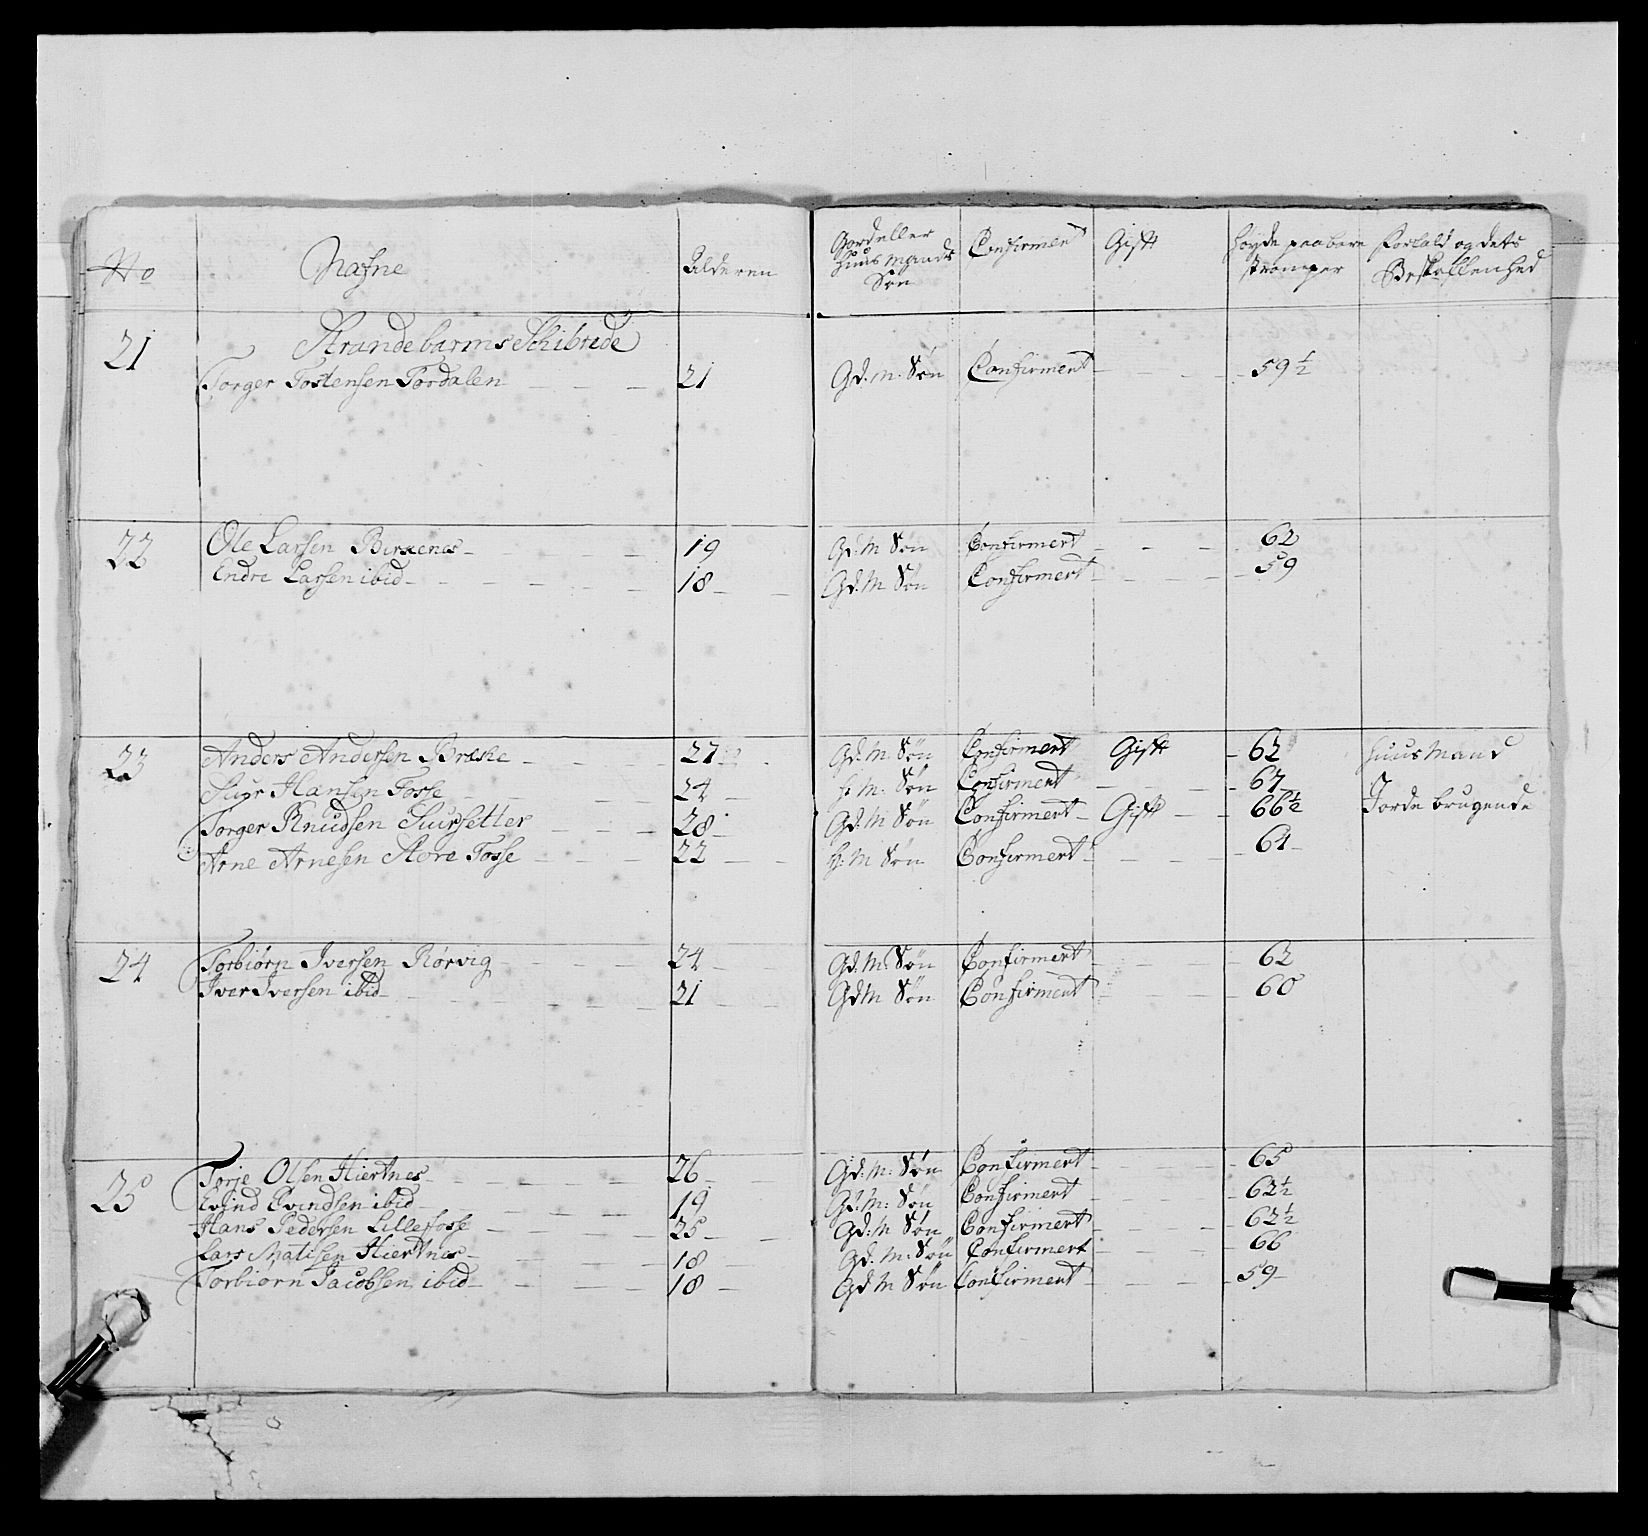 No Nafne Alderen Gord eller Huus Mands Søn Confirmert Gift Høyde paa bare strømper Forfald og dets Beskaffenhed
Strandebarms Schibrede
21 Torger Tostensen Tordalen 21 Gd. M. Søn Confirmert 59 ½
22 Ole Larsen Birkenes 19 Gd: M Søn Confirmert 62
Endre Larsen ibid 18 Gd: M Søn Confirmert 59
23 Anders Andersen Bræke 27 Gd: M Søn Confirmert Gift 62 Huusmand
Siur Hansen Fosse 24 H: M: Søn Confirmert 67
Torger Knudsen Suursetter 28 Gd: M Søn Confirmert Gift 66½ Jorde brugende
Arne Arnesen Store Fosse 22 H: M Søn Confirmert 64
24 Torbiørn Iversen Rørvig 24 Gd: M: Søn Confirmert 62
Iver Iversen ibid 21 Gd M Søn Confirment 60
25 Torje Olsen Hiertnes 26 Gd: M: Søn Confirmert 65
Evind Evindsen ibid 19 Gd: M: Søn Confirmert 62½
Hans Pedersen Lillefosse 25 Gd: M Søn Confirmert 62½
Lars Matisen Hiertnes 18 Gd: M: Søn Confirmert 66
Torbiørn Jacobsen ibid 18 Gd M Søn Confirment 59